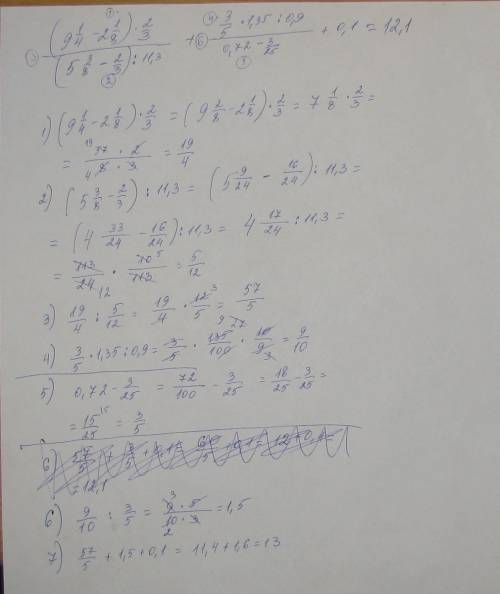 ① ④
③ ((9 1/4 - 2 1/8) · 2/3) / ((5 3/8 - 2/3) : 11,3) + ⑥ (3/5 · 1,35 : 0,9) / (0,72 - 3/25) + 0,1 = 12,1
② ⑤
1) (9 1/4 - 2 1/8) · 2/3 = (9 2/8 - 2 1/8) · 2/3 = 7 1/8 · 2/3 =
= 57 · 2 / 8 · 3 = 19/4
2) (5 3/8 - 2/3) : 11,3 = (5 9/24 - 16/24) : 11,3 =
= (4 33/24 - 16/24) : 11,3 = 4 17/24 : 11,3 =
= 113/24 · 10/113 = 5/12
3) 19/4 : 5/12 = 19/4 · 12/5 = 57/5
4) 3/5 · 1,35 : 0,9 = 3/5 · 135/100 · 10/9 = 9/10
5) 0,72 - 3/25 = 72/100 - 3/25 = 18/25 - 3/25 =
= 15/25 = 3/5
6) 57/5
= 12,1
6) 9/10 : 3/5 = 9 · 5 / 10 · 3 = 1,5
7) 57/5 + 1,5 + 0,1 = 11,4 + 1,6 = 13